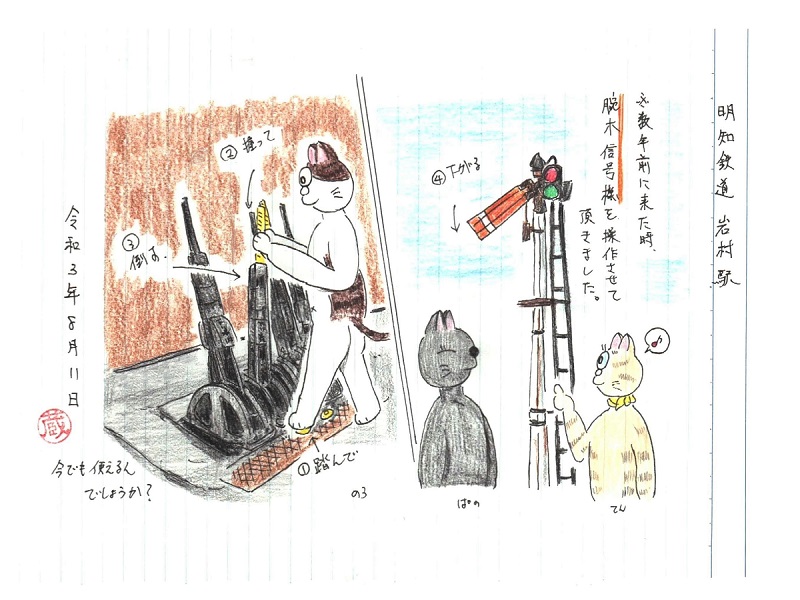 明知鉄道 岩村駅
数年前に来た時、
腕木信号機を操作させて
頂きました。
④下がる
②握って
③倒す
①踏んで
令和3年8月11日
蔵
今でも使えるん
でしょうか?
の3
ぱの
てん